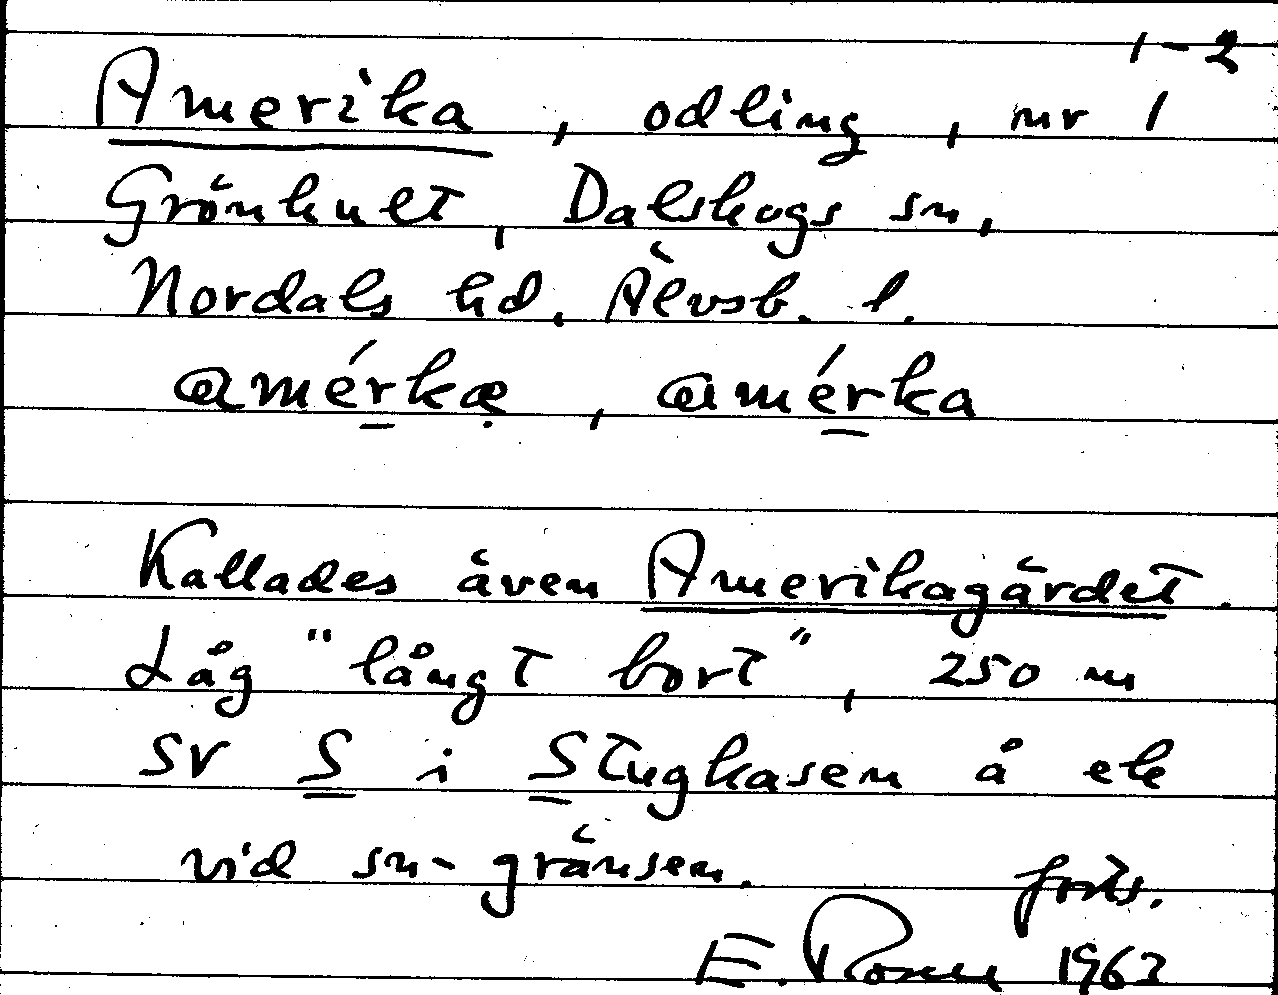 1-2
Amerika, odling, nr 1
Grönhult, Dalskogs sn,
Nordals hd, Älvsb. l.
amérkæ̣, amérka
Kallades även Amerikagärdet.
Låg "långt bort", 250 m
SV S i Stugkasen å ek
vid sn-gränsen.
forts.
E. Rosén 1963